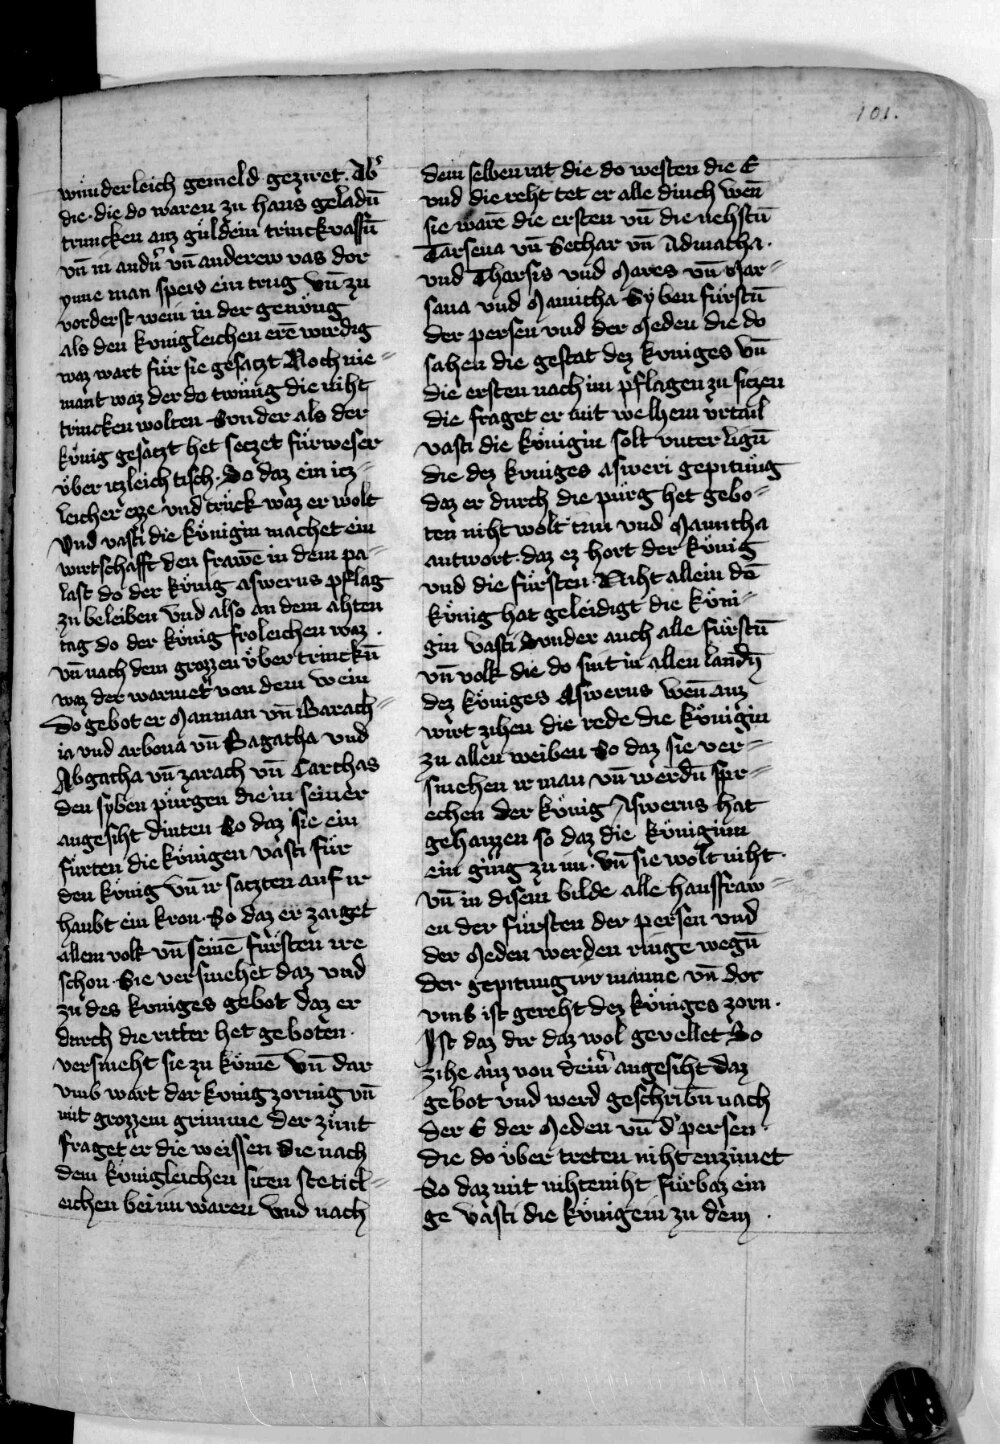 101.
wunderleich gemeld geziret. Ab͛
die. die do waren zu haus geladn̄
truncken auz guldein trinckvassn̄
vn̄ in andn̄ vn̄ anderew vas dor
ynne man speis ein trug Vn̄ zu
vorderst wein in der genüg
als den kunigleichen erē wirdig
waz wart für sie gesatzt Noch nie=
mant waz der do twüng die niht
trincken wolten Sunder als der
künig gesatzt het setzet fürweser
über itzleich tisch. So daz ein itz=
leicher ezze vnd trück waz er wolt
Vnd vasti die künigin machet ein
wirtschafft den frawē in dem pa=
last do der künig aswerus pflag
zu beleiben Vnd also an dem ahten
tag do der künig froleichen waz.
vn̄ nach dem grozzen über trinckn̄
waz der warmet von dem wein
Do gebot er Mauman vn̄ Barach=
ia vnd arbona vn̄ Bagatha vnd
Abgatha vn̄ zarach vn̄ Carchas
den syben pürgen die in seiner
angesiht dinten So daz sie ein
fürten die künigen vasti für
den künig vn̄ ir satzten auf ir
haubt ein kron. So daz er zaiget
allem volk vn̄ seinē fürsten ire
schon. Sie versmehet daz vnd
zu des kuniges gebot daz er
durch die ritter het geboten.
versmeht sie zu kümē Vn̄ dar
vmb wart der künig zornig vn̄
mit grozzem grimme der zünt
fraget er die weissen die nach
dem künigleichen siten stetich=
eichen bei im waren Vnd nach
dem selben rat die do westen die E
vnd die reht tet er alle dinch wen̄
sie warē die ersten vn̄ die nehstn̄
Tarsena vn̄ Sechar vn̄ Admatha.
vnd Tharsis vnd Mares vn̄ Mar=
sana vnd Mamucha Syben fürstn̄
der persen vnd der Meden die do
sahen die gestat dez kuniges Vn̄
die ersten nach im pflagen zu sitzen
die fraget er mit welhem vrtail
vasti die künigin solt vnter lign̄
die dez kuniges asweri gepitüng
daz er durch die pürg het gebo=
ten niht wolt tun vnd Mamucha
antwort. daz ez hort der künig
vnd die fürsten. Niht allein dē
künig hat geleidigt die küni=
gin vasti Sunder auch alle fürstn̄
vn̄ volk die do sint in allen landn̄
dez küniges Aswerus wen̄ auz
wirt zihen die rede die künigin
zu allen weiben So daz sie ver=
smehen ir man vn̄ werdn̄ spr=
echen der künig Aswerus hat
gehaizzen so daz die küniginn
ein ging zu im. Vn̄ sie wolt niht.
vn̄ in disem bilde alle hausfraw=
en der fürsten der persen vnd
der Meden werden ringe wegn̄
der gepitung ir manne vn̄ dor
vmb ist gereht dez küniges zorn.
Ist daz dir daz wol gevellet So
zihe auz von deim̄ angesiht daz
gebot vnd werd geschribn̄ nach
der E der Meden vn̄ d͛ persen
die do über treten niht enzimet
So daz mit nihteniht fürbaz ein
ge vasti die künigein zu dem.